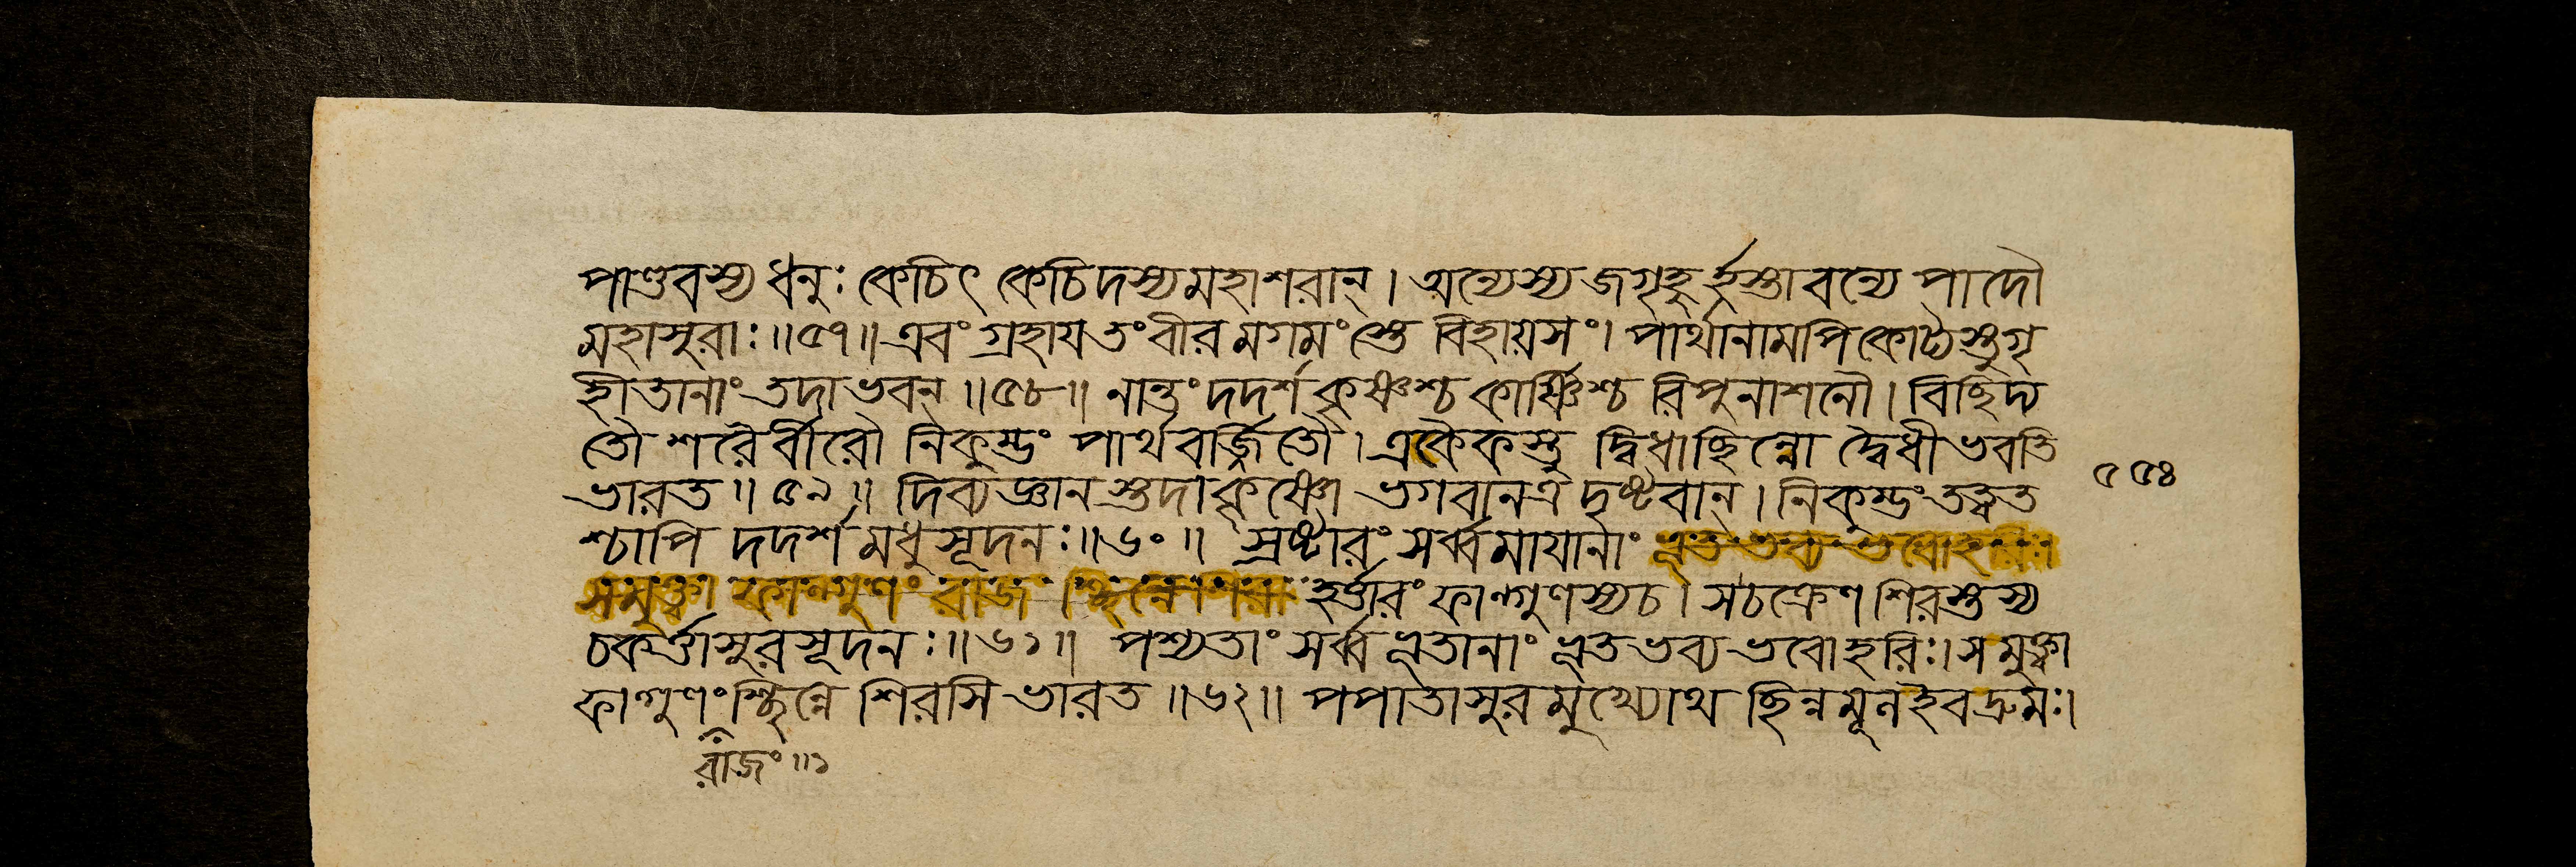 পাণ্ডবস্য ধনুঃ কেচিৎ কেচিদস্য মহাশরান্। অন্যেস্য জগৃহুর্হস্তাবন্যে পাদৌ
মহাসুরাঃ॥৫৭॥ এবং গ্রহায তং বীরমগমংস্তে বিহায়সং। পার্থানামপি কোট্যস্তু গৃ
হীতানাং তদাভবন্॥৫৮॥ নান্তং দদর্শ কৃষ্ণশ্চ কার্ষ্ণিশ্চ রিপুনাশনৌ। বিছিদ্য
তৌ শরৈর্বীরৌ নিকুম্ভং পার্থবর্জ্জিতৌ। একৈকস্তু দ্বিধাছিন্নো দ্বৈধীভবতি
ভারত॥৫৯॥ দিব্যজ্ঞানস্তদাকৃষ্ণো ভগবানত্র দৃষ্টবান্। নিকুম্ভং তত্ত্বত
৫৫৪
শ্চাপি দদর্শ মধুসূদনঃ॥৬০॥ স্রষ্টারং সর্ব্বমাযানাং ভূতভব্যভবোহরিঃ।
সমুক্ত্বা ফাল্গুণং রাজ হর্ত্তারং ফাল্গুণস্য চ। সচক্রেণ শিরস্তস্য
চকর্ত্তাসুরসূদনঃ॥৬১॥ পশ্যতাং সর্ব্বভূতানাং ভূতভব্যভবোহরিঃ। সমুক্ত্বা
ফাল্গুণং শ্ছিন্নে শিরসি ভারত॥৬২॥ পপাতাসুরমুখ্যোথ ছিন্নমূলইবদ্রুমঃ।
রাজং॥১